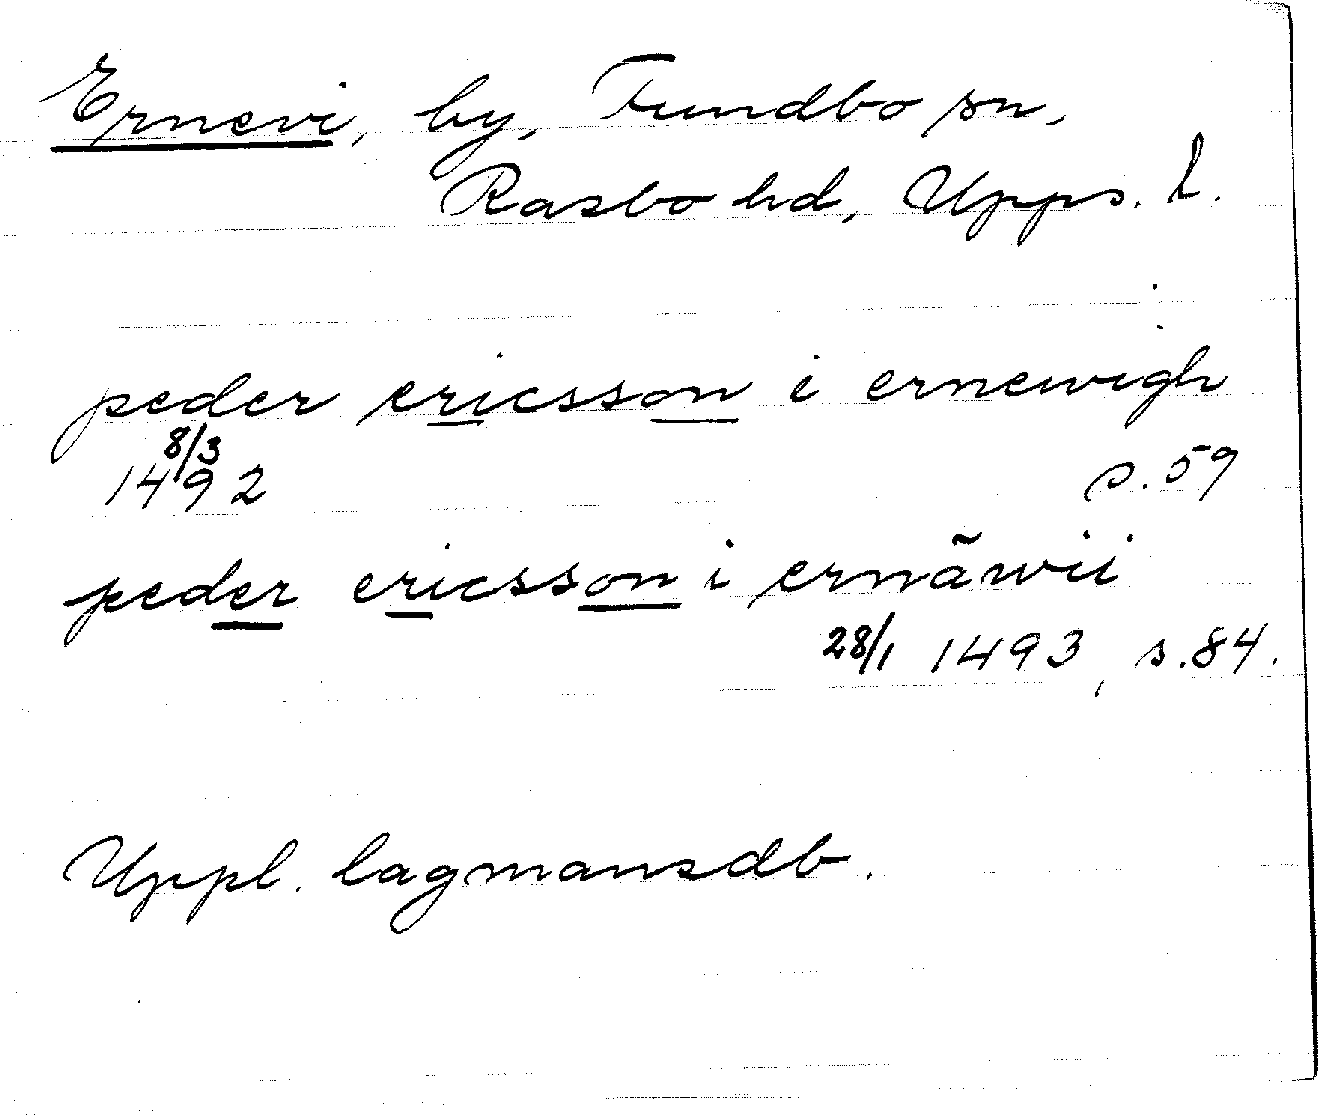 Ernevi, by, Funbo sn,
Rasbo hd, Upps. l.
peder ericsson i ernewigh
8/3
1492 s. 59
peder ericsson i ernãwii
28/1 1493, s. 84.
Uppl. lagmansdb.